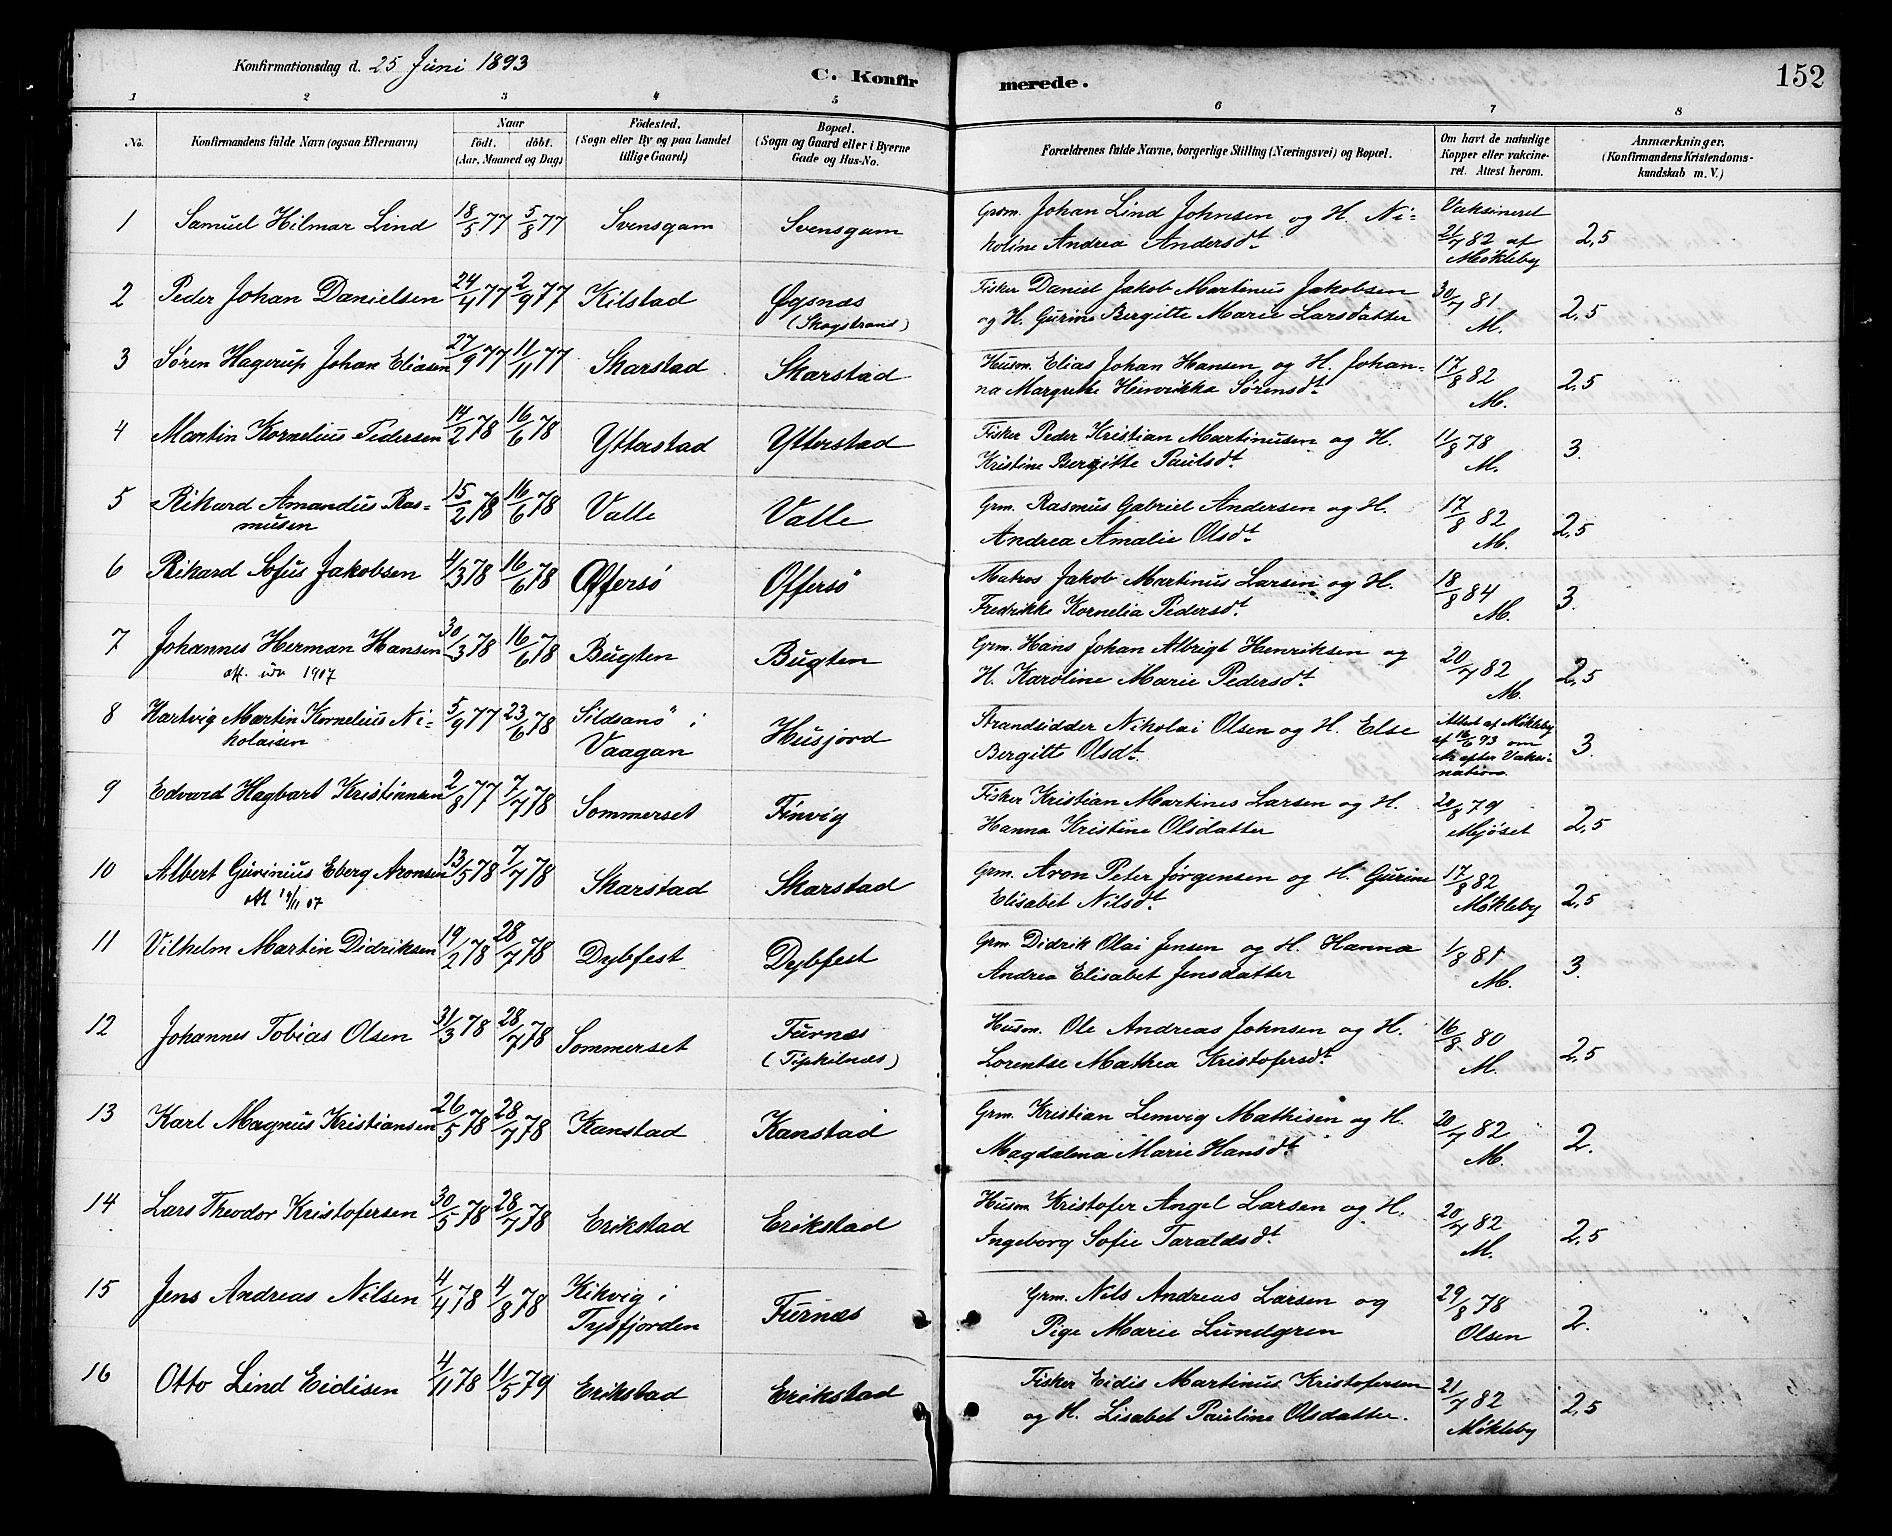 Konfirmationsdag d. 25 Juni 1893
C. Konfir
merede.
152
1 2 3 4 5 6 7 8
No.
Konfirmandens fulde Navn (ogsaa Efternavn)
Naar
født. døbt.
(Aar, Maaned og Dag)
Födested.
(Sogn eller By og paa Landet
tillige Gaard)
Bopæl.
(Sogn og Gaard eller i Byerne
Gade og Hus-No.
Forældrenes fulde Navne, borgerlige Stilling (Næringsvei) og Bopæl.
Om havt de naturlige
Kopper eller vakcine-
ret. Attest herom.
Anmærkninger.
(Konfirmandens Kristendoms-
kundskab m. V.)
1 Samuel Hilmar Lind 18/5 77 5/8 77 Svensgam Svensgam Grdm. Johan Lind Johnsen og H. Ni- Vaksineret
koline Andrea Andersdt. 21/7 82 af 2,5
Møkleby
2 Peder Johan Danielsen 24/4 77 2/9 77 Kilstad Øgsnæs Fisker Daniel Jakob Martinus Jakobsen 30/7 81
(Skogstrand) og H. Gurine Bergitte Marie Larsdatter M. 2,5
3 Søren Hagerup Johan Eliasen 27/9 77 11/11 77 Skarstad Skarstad Husm. Elias Johan Hansen og H. Johan- 17/8 82
na Margrethe Heinrikka Sørensdt. M. 2,5
4 Martin Kornelius Pedersen 14/2 78 16/6 78 Ytterstad Ytterstad Fisker Peder Kristian Martinusen og H. 11/8 78
Kristine Bergitte Paulsdt. M. 3.
5 Rikard Amandus Ras- 15/2 78 16/6 78 Valle Valle Grm. Rasmus Gabriel Andersen og H. 17/8 82
musen Andrea Amalie Olsdt. M. 2,5
6 Rikard Sofus Jakobsen 4/3 78 16/6 78 Offersø Offersø Matros Jakob Martinus Larsen og H. 18/8 84
Fredrikke Kornelia Pedersdt. M. 3.
7 Johannes Herman Hansen 30/3 78 16/6 78 Bugten Bugten Grm. Hans Johan Albrigt Henriksen og 20/7 82
1907 H. Karoline Marie Pedersdt. M. 2,5
8 Hartvig Martin Kornelius Ni- 5/9 77 23/6 78 Sildsanø i Husjord Strandsidder Nikolai Olsen og H. Else Attest af Møkleby
kolaisen Vaagan Bergitte Olsdt. af 16/6 93 om 3
efter Vaksi-
nation
9 Edvard Hagbart Kristiansen 2/8 77 7/7 78 Sommerset Finvig Fisker Kristian Martines Larsen og H. 20/8 79
Hanna Kristine Olsdatter Mjøset 2,5
10 Albert Gurinius Eberg Aronsen 13/5 78 7/7 78 Skarstad Skarstad Grm. Aron Peter Jørgensen og H. Gurine 17/8 82
att 14/11 07 Elisabet Nilsdt. Møkleby 2,5
11 Vilhelm Martin Didriksen 19/2 78 28/7 78 Dybfest Dybfest Grm. Didrik Olai Jensen og H. Hanna 1/8 81
Andrea Elisabet Jensdatter M. 3.
12 Johannes Tobias Olsen 31/3 78 28/7 78 Sommerset Furnæs Husm. Ole Andreas Johnsen og H. 16/8 80
(Tipkilnæs) Lorentse Mathea Kristofersdt. M. 2,5
13 Karl Magnus Kristiansen 26/5 78 28/7 78 Kanstad Kanstad Grm. Kristian Lemvig Mathisen og H. 20/7 82
Magdalena Marie Hansdt. M. 2.
14 Lars Theodor Kristofersen 30/5 78 28/7 78 Erikstad Erikstad Husm. Kristofer Angel Larsen og H. 20/7 82
Ingeborg Sofie Taraldsdt. M. 2,5
15 Jens Andreas Nilsen 4/4 78 4/8 78 Kikvig i Furnæs Grm. Nils Andreas Larsen og 29/8 78
Tysfjorden Pige Marie Lundgren Olsen 2.
16 Otto Lind Eidisen 4/11 78 11/5 79 Erikstad Erikstad Fisker Eidis Martinus Kristofersen 21/7 82
og H. Lisabet Pauline Olsdatter. Møkleby 2,5